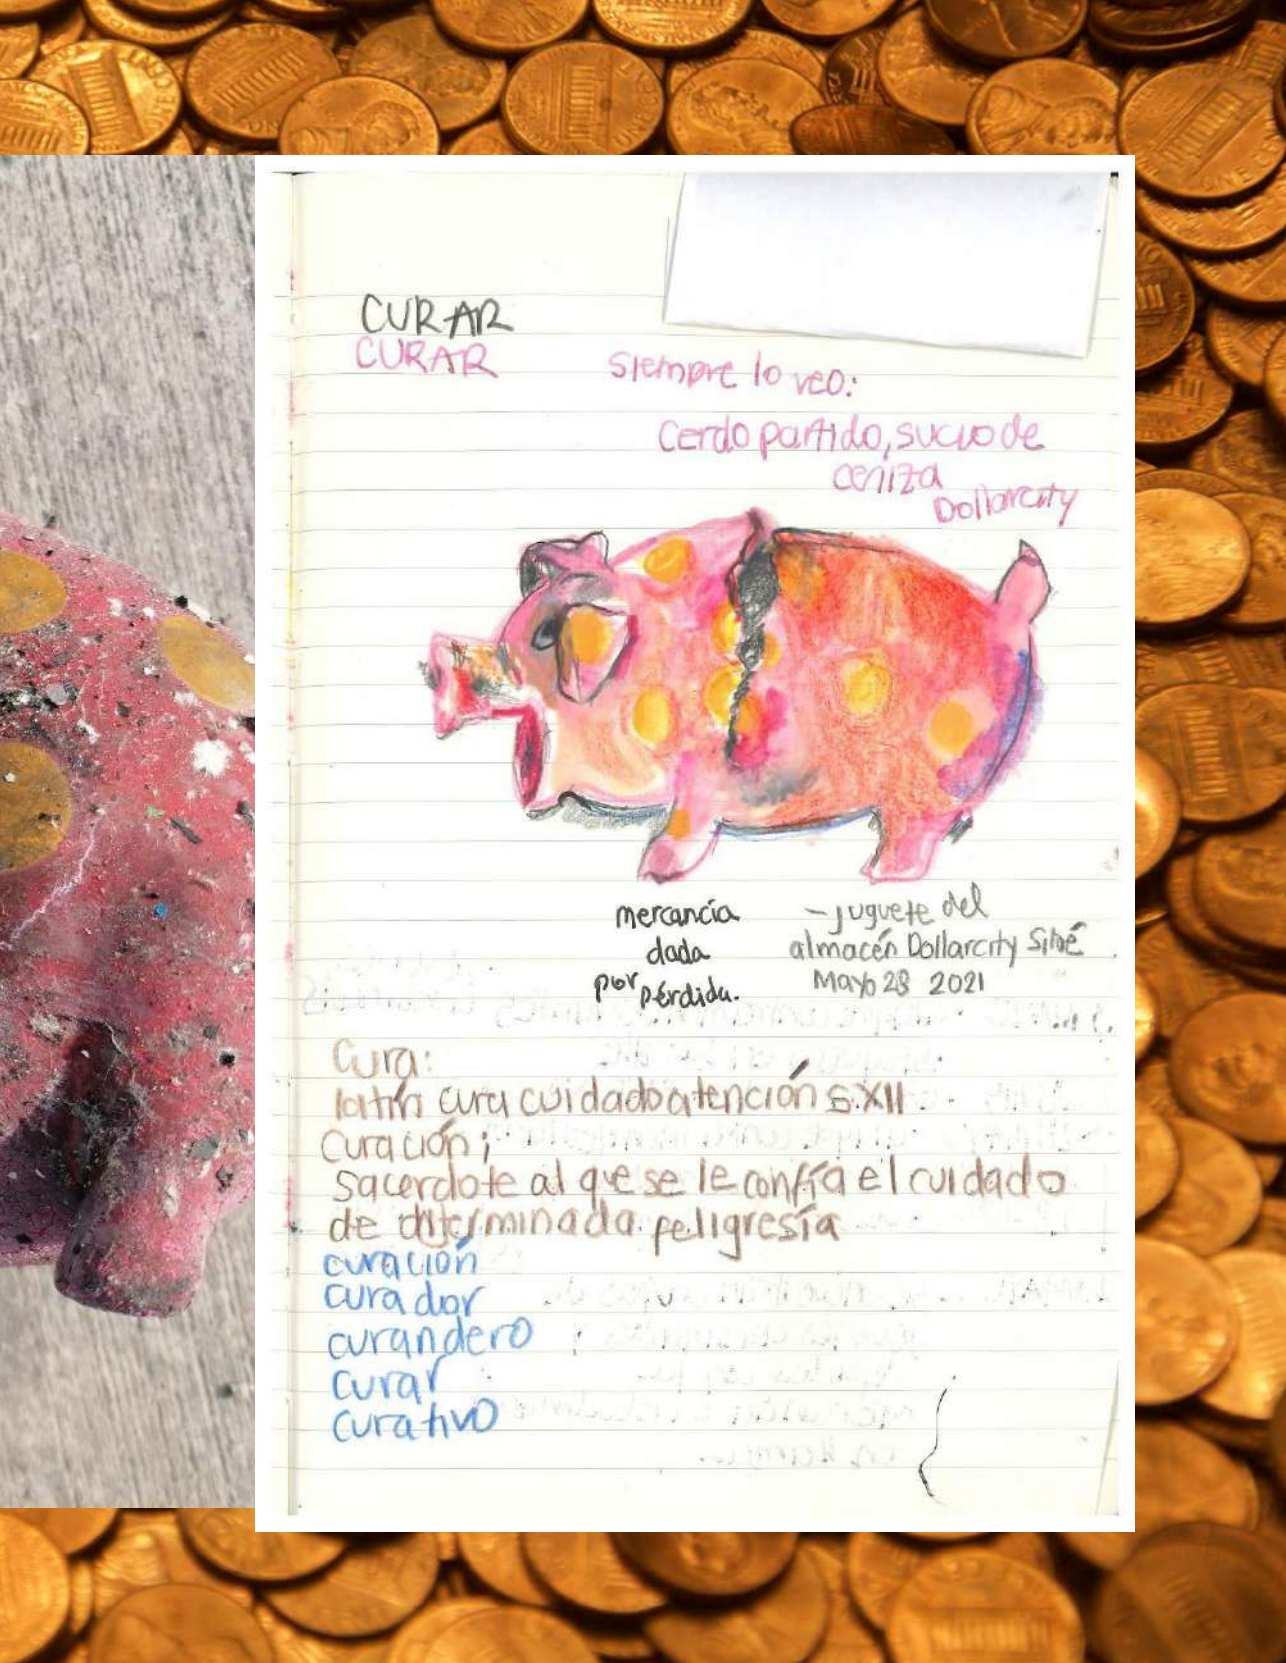 CURAR
CURAR
Siempre lo veo:
Cerdo partido, sucio de
ceniza
Dollarcity
mercancía
dada
por pérdida.
- juguete del
almacén Dollarcity Siloé
Mayo 28 2021
Cura:
latín cura cuidado atención S.XII
Curación;
Sacerdote al que se le confía el cuidado
de determinada feligresía
curación
curador
curandero
curar
curativo